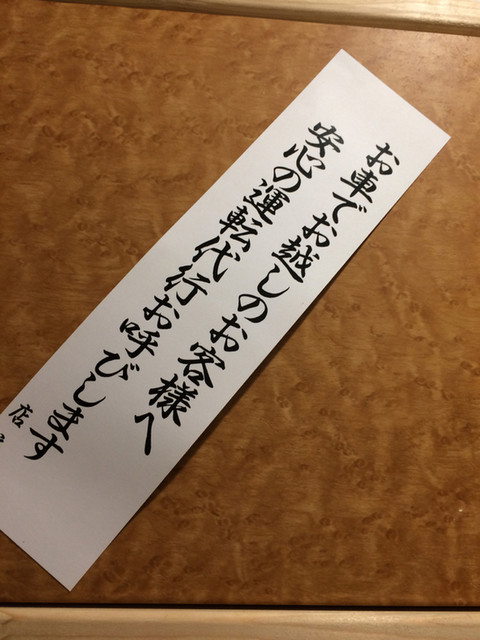 お車でお越しのお客様へ
安心の運転代行お呼びします
店